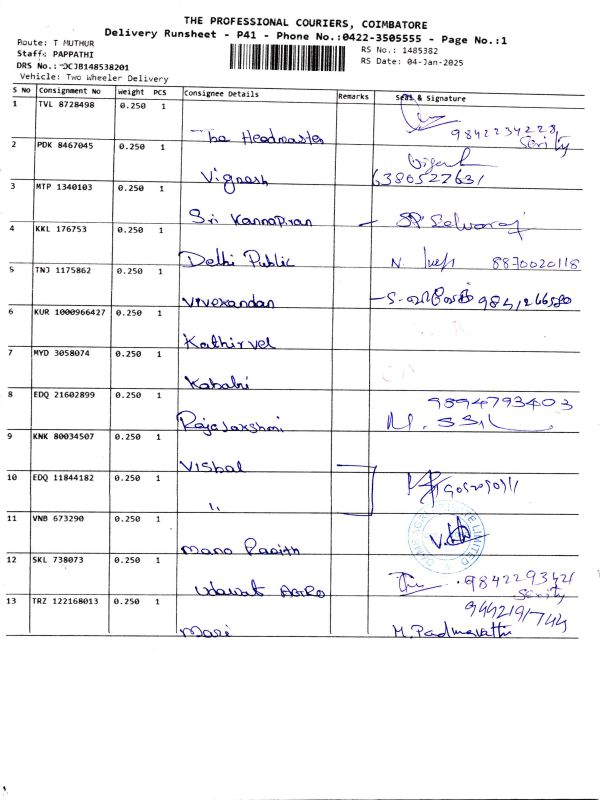 THE PROFESSIONAL COURIERS, COIMBATORE
Delivery Runsheet - P41 - Phone No.:0422-3505555 - Page No.:1
Route: T MUTHUR
Staff: PAPPATHI
DRS No.: DCJB148538201
Vehicle: Two Wheeler Delivery
RS No.: 1485382
RS Date: 04-Jan-2025
S No Consignment No Weight PCS Consignee Details Remarks Seal & Signature
1 TVL 8728498 0.250 1 The Headmaster 9842234228
2 PDK 8467045 0.250 1 Vignesh 6380527631
3 MTP 1340103 0.250 1 Sri Kannapiran
4 KKL 176753 0.250 1 Delhi Public N. 8870020118
5 TNJ 1175862 0.250 1 Vivekandan
6 KUR 1000966427 0.250 1 Kathirvel
7 MYD 3058074 0.250 1 Kababi
8 EDQ 21602899 0.250 1 Rajalakshmi 9894793403
9 KNK 80034507 0.250 1 Vishal
10 EDQ 11844182 0.250 1 "
11 VNB 673290 0.250 1 Mano
12 SKL 738073 0.250 1
13 TRZ 122168013 0.250 1 Mari M. Padmavathi